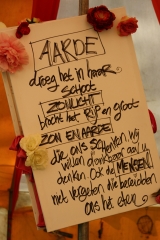 AARDE
droeg het in haar
schoot
ZONLICHT
bracht het RIJP en groot
ZON EN AARDE
die ons SCHENKEN wij
willen dankbaar aan u
denken. Ook de MENSEN
niet vergeten die bereidden
ons het eten